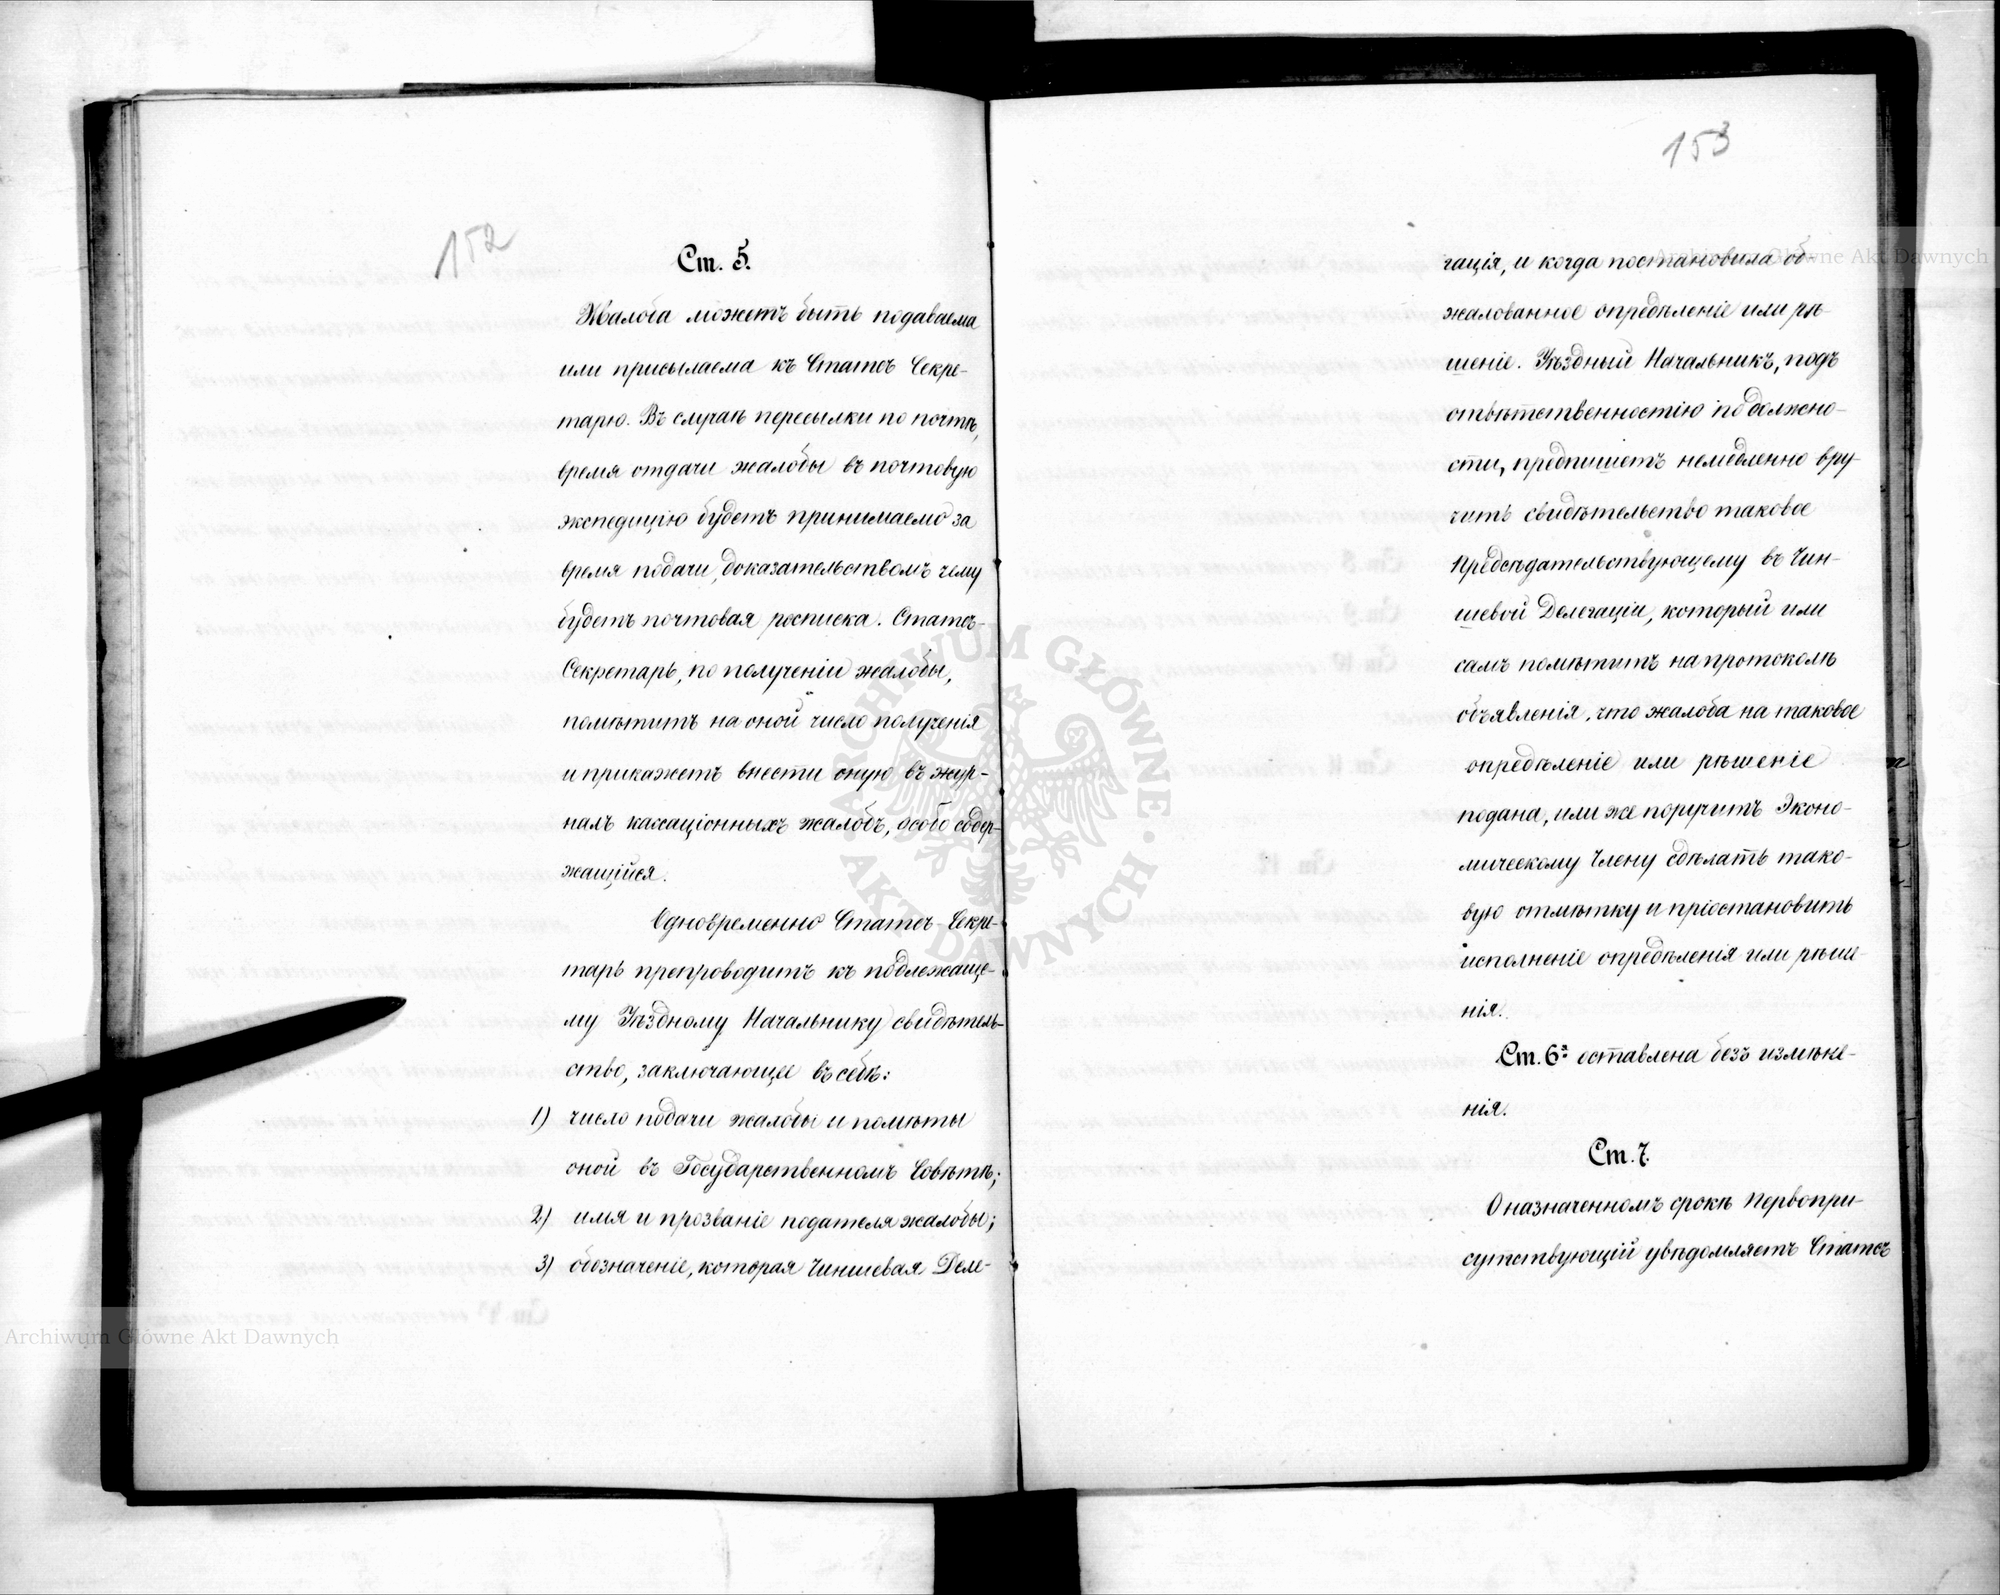 152
Ст. 5.
Жалоба можетъ быть подаваема
или присылаема къ Статсъ Секре-
тарю. Въ случаѣ пересылки по почтѣ,
время отдачи жалобы въ почтовую
экспедицію будетъ принимаемо за
время подачи, доказательствомъ чему
будетъ почтовая росписка. Статсъ-
Секретарь, по полученіи жалобы,
помѣтитъ на оной число полученія
и прикажетъ внести оную въ жур-
налъ кассаціонныхъ жалобъ, особо содер-
жащійся.
Одновременно Статсъ-Секре-
тарь препроводитъ къ подлежаще-
му Уѣздному Начальнику свидѣтель-
ство, заключающее въ себѣ:
1) число подачи жалобы и помѣты
оной въ Государственномъ Совѣтѣ;
2) имя и прозваніе подателя жалобы;
3) обозначеніе, которая Чиншевая Деле-
153
гація, и когда постановила об-
жалованное опредѣленіе или рѣ-
шеніе. Уѣздный Начальникъ, подъ
отвѣтственностію по должно-
сти, предпишетъ немедленно вру-
чить свидѣтельство таковое
Предсѣдательствующему въ Чин-
шевой Делегаціи, который или
самъ помѣтитъ на протоколѣ
объявленія, что жалоба на таковое
опредѣленіе или рѣшеніе
подана, или же поручитъ Эконо-
мическому Члену сдѣлать тако-
вую отмѣтку и пріостановить
исполненіе опредѣленія или рѣше-
нія.
Ст. 6я оставлена безъ измѣне-
нія.
Ст. 7.
О назначенномъ срокѣ Первопри-
сутствующій увѣдомляетъ Статсъ
Archiwum Główne Akt Dawnych
Archiwum Główne Akt Dawnych
ARCHIWUM GŁÓWNE AKT DAWNYCH